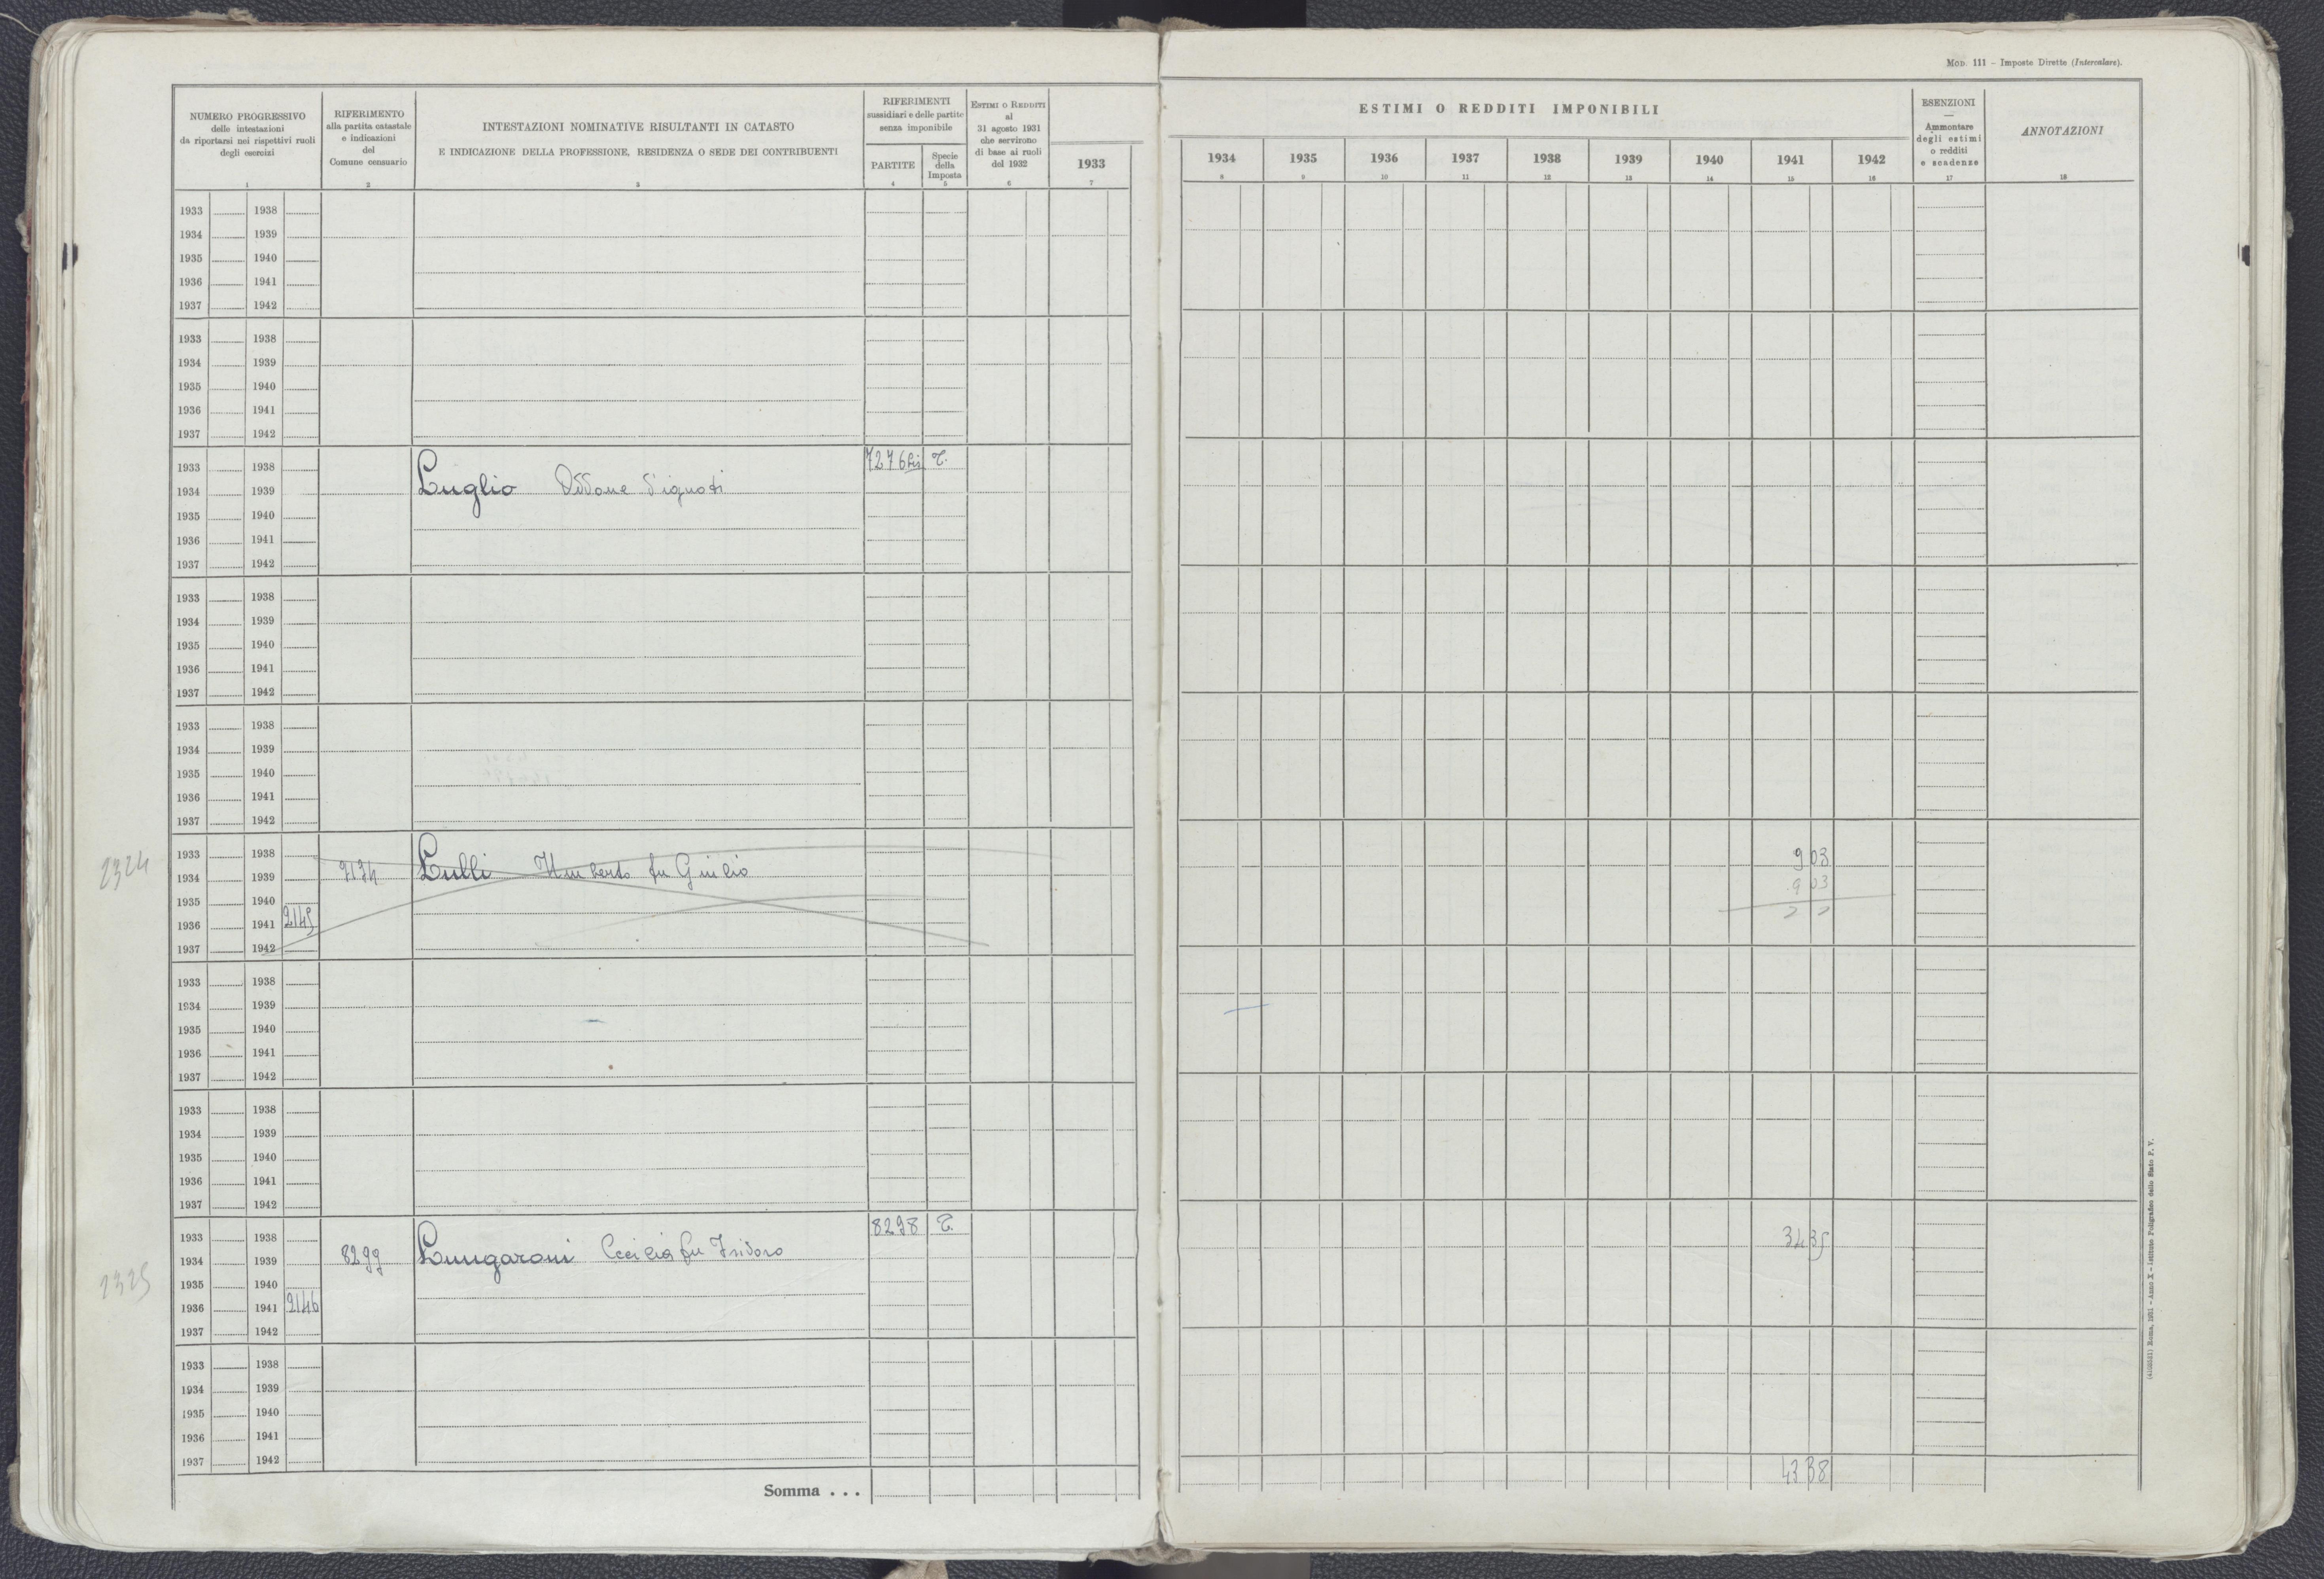 MOD. 111 - Imposte Dirette (Intercalare).
NUMERO PROGRESSIVO
delle intestazioni
da riportarsi nei rispettivi ruoli
degli esercizi
1
RIFERIMENTO
alla partita catastale
e indicazioni
del
Comune censuario
2
INTESTAZIONI NOMINATIVE RISULTANTI IN CATASTO
E INDICAZIONE DELLA PROFESSIONE, RESIDENZA O SEDE DEI CONTRIBUENTI
3
RIFERIMENTI
sussidiari e delle partite
senza imponibile
PARTITE
4
Specie
della
Imposta
5
ESTIMI O REDDITI
al
31 agosto 1931
che servirono
di base ai ruoli
del 1932
6
1933
7
ESTIMI O REDDITI IMPONIBILI
1934 1935 1936 1937 1938 1939 1940 1941 1942
8 9 10 11 12 13 14 15 16
ESENZIONI
Ammontare
degli estimi
o redditi
e scadenze
17
ANNOTAZIONI
18
1933 1938
1934 1939
1935 1940
1936 1941
1937 1942
1933 1938
1934 1939
1935 1940
1936 1941
1937 1942
1933 1938 7276bis T.
1934 1939 Luglio Oddone d'ignoti
1935 1940
1936 1941
1937 1942
1933 1938
1934 1939
1935 1940
1936 1941
1937 1942
1933 1938
1934 1939
1935 1940
1936 1941
1937 1942
2324 1933 1938 903
1934 1939 Lulli Umberto fu Giulio
1935 1940 903
1936 1941 2145
1937 1942
1933 1938
1934 1939
1935 1940
1936 1941
1937 1942
1933 1938
1934 1939
1935 1940
1936 1941
1937 1942
1933 1938 8298 T. 3435
1934 1939 8299 Lungaroni Cecilia fu Isidoro
2325 1935 1940
1936 1941 2146
1937 1942
1933 1938
1934 1939
1935 1940
1936 1941
1937 1942
Somma . . . 4338
(4102021) Roma, 1931 - Anno X - Istituto Poligrafico dello Stato P. V.